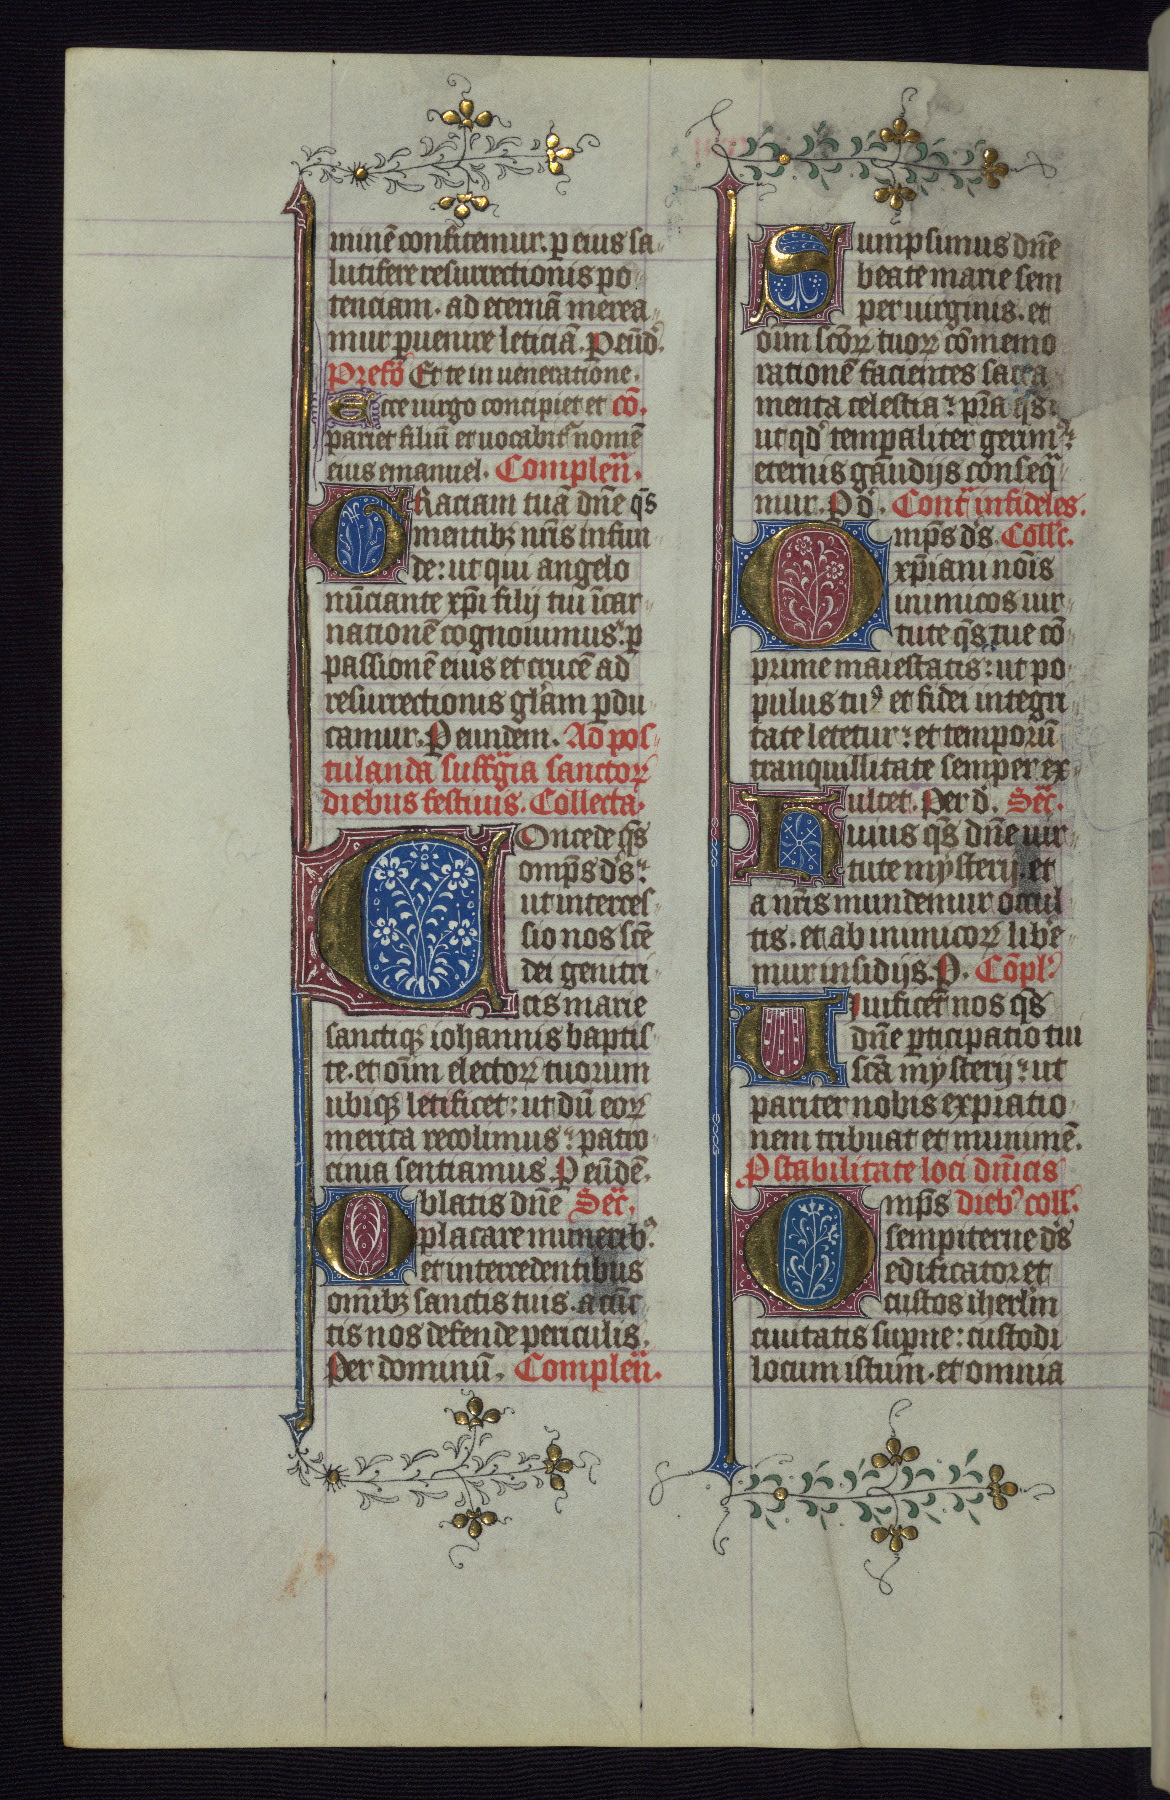 minē confitemur. ꝑ eius sa-
lutifere resurrectionis po-
tenciam. ad eternā merea-
mur ꝑuenire leticiā. Ꝑ eūd'.
Prefō Et te in ueneratione.
Ecce uirgo concipiet et cō.
pariet filiū et uocabit' nomē
eius emanuel. Complen̄.
GRaciam tuā dn̄e q̄s
mentibꝫ nr̄is infun-
de: ut qui angelo
nūciante xp̄i filij tui īcar-
nationē cognouimus: ꝑ
passionē eius et crucē ad
resurrectionis gl'am ꝑdu-
camur. Ꝑ eundem. Ad pos-
tulanda suffr̄gia sanctoꝝ
diebus festiuis. Collecta.
COncede q̄s
omp̄s d's:
ut interces-
sio nos sc̄e
dei genitri-
cis marie
sanctiqꝫ iohannis baptis-
te. et oīm electoꝝ tuorum
ubiqꝫ letificet: ut dū eoꝝ
merita recolimus: patro-
cinia sentiamus. Ꝑ eūdē.
Oblatis dn̄e Sec̄.
placare muneribꝰ.
et intercedentibus
omībꝫ sanctis tuis. a cūc-
tis nos defende periculis.
Per dominū. Complen̄.
Sumpsimus dn̄e
beate marie sem
per uirginis. et
oīm sc̄oꝝ tuoꝝ cōmemo
rationē facientes sacra
menta celestia: pr̄a q̄s
ut qd' temꝑaliter gerimꝰ:
eternis gaudijs conseq̄
mur. Ꝑ d'. Cont̄ infideles.
Omp̄s d's. Coll'c.
xp̄iani nōis
inimicos uir-
tute q̄s tue cō-
prime maiestatis: ut po-
pulus tuꝰ et fidei integri-
tate letetur: et temporū
tranquillitate semper ex-
ultet. Per d'. Sec̄.
Huius q̄s dn̄e uir-
tute mysterij. et
a nr̄is mundemur occul-
tis. et ab inimicoꝝ libe-
mur insidijs. Ꝑ. Cōpl'.
Viuificet nos q̄s
dn̄e ꝑticipatio tui
sc̄ā mysterij: ut
pariter nobis expiatio-
nem tribuat et munimē.
Ꝓ stabilitate loci dn̄icis
Omp̄s diebꝰ coll'.
sempiterne d's
edificator et
custos iherl'm
ciuitatis suꝑne: custodi
locum istum. et omnia